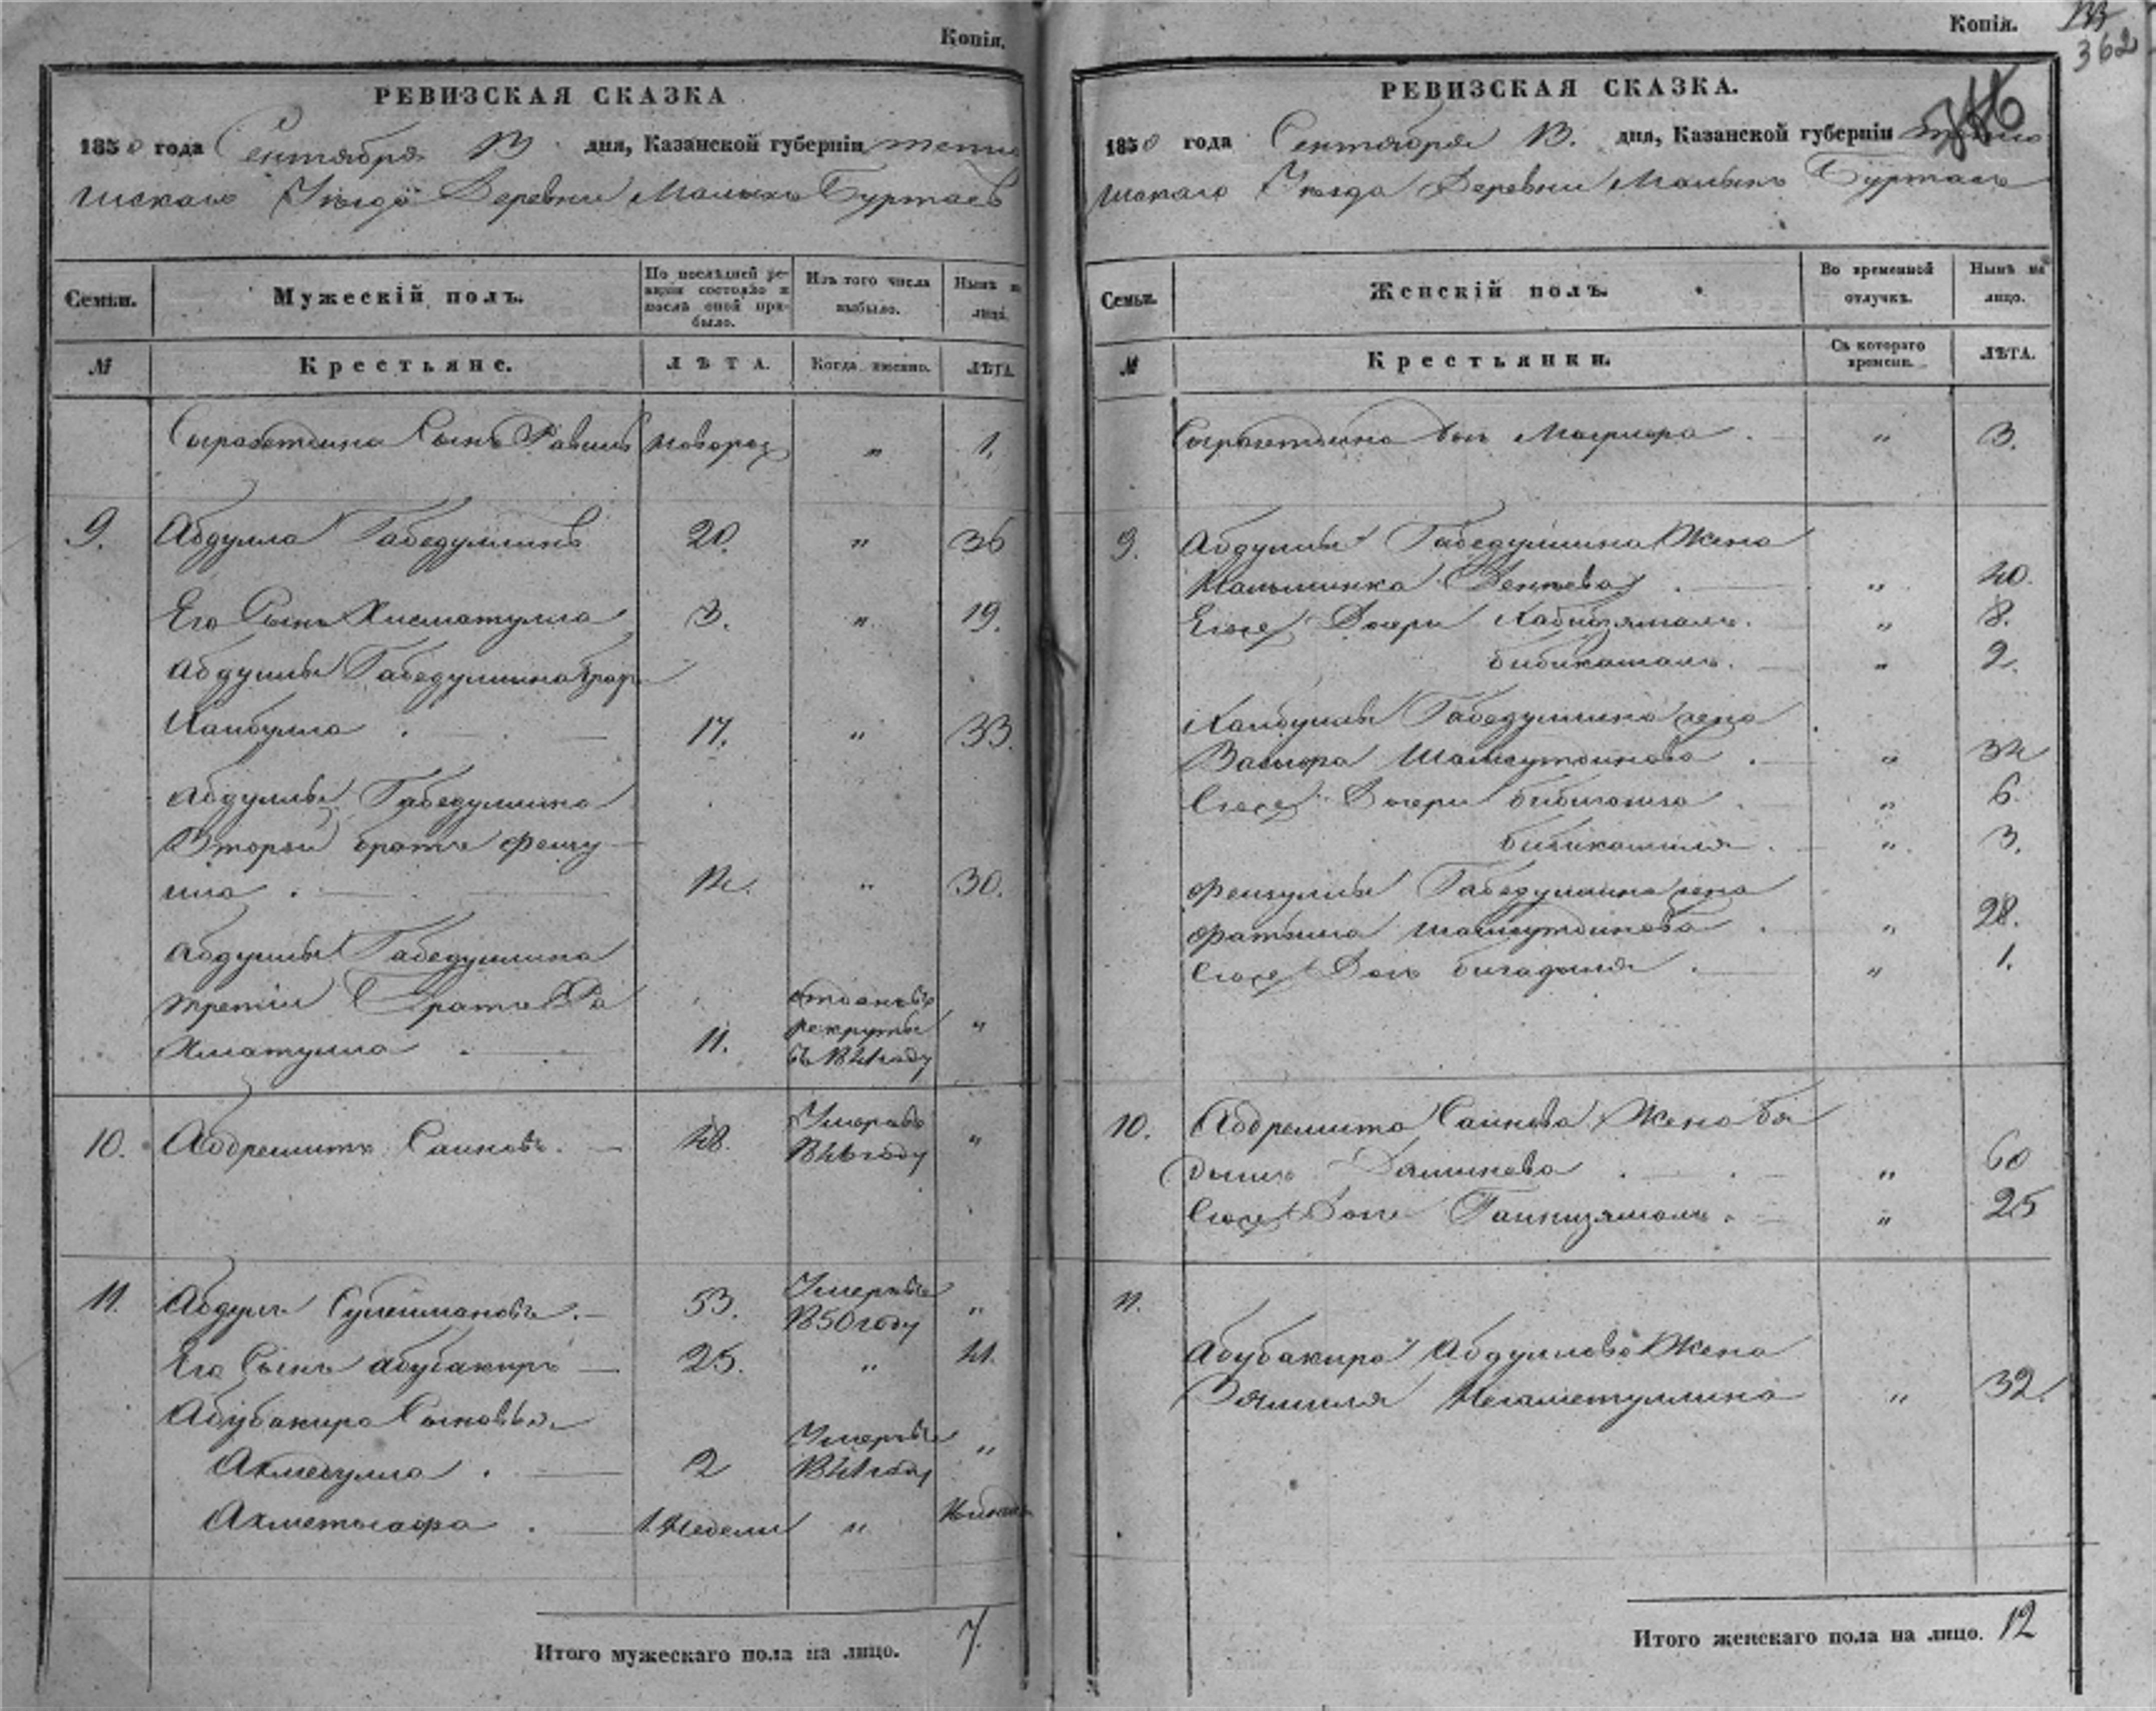 Копія.
РЕВИЗСКАЯ СКАЗКА
1850 года Сентября 13 дня, Казанской губерніи тетю
шскаго Уѣзда Деревни Малыхъ Буртасъ
Семьи.
Мужескій полъ.
По послѣдней ре-
визіи состояло и
послѣ оной при-
было.
Изъ того числа
выбыло.
Нынѣ на
лицо.
№
Крестьяне.
ЛѢТА.
Когда именно.
ЛѢТА.
Сынъ новорож „ 1.
9. Абдулла Габедуллинъ 20. „ 36
Его Сынъ Хисматулла 3. „ 19.
Абдуллы Габедуллина братъ
Хайбулла 17. „ 33.
Абдуллы Габедуллина
Второй братъ Фейзу
лла 14. „ 30.
Абдуллы Габедуллина
третій Братъ Ра
хматулла 11. отданъ въ
рекруты „
въ 1841 году
10. Абдрешитъ Саиновъ. 48. Умеръ въ
1846 году „
11. Абдулъ Сулеймановъ. 53. Умеръ въ
1850 году „
Его Сынъ абубакиръ 25. „ 41.
Абубакира Сыновья
Ахмедулла 2 Умеръ въ
1841 году „
Ахметсафа 1 Недели „
Итого мужескаго пола на лицо. 7.
Копія.
362
РЕВИЗСКАЯ СКАЗКА.
1850 года Сентября 13. дня, Казанской губерніи тетю
шскаго Уѣзда Деревни Малыхъ Буртасъ
Семьи.
Женскій полъ.
Во временной
отлучкѣ.
Нынѣ на
лицо.
№
Крестьянки.
Съ котораго
времени.
ЛѢТА.
дочь „ 3.
9. Абдуллы Габедуллина Жена
„ 40.
Ихъ Дочери Хабизямалъ. „ 8.
бибикамалъ. „ 2.
Хайбуллы Габедуллина жена
Шамсутдинова „ 34
Ихъ Дочери „ 6.
„ 3.
Фейзуллы Габедуллина жена
Фатыма Шамсутдинова „ 28.
Ихъ Дочь „ 1.
10. Абдрешита Саинова Жена ба
„ 60
Ихъ Дочь „ 25
11.
Абубакира Абдулова Жена
Зямиля Негаметуллина „ 32.
Итого женскаго пола на лицо. 12